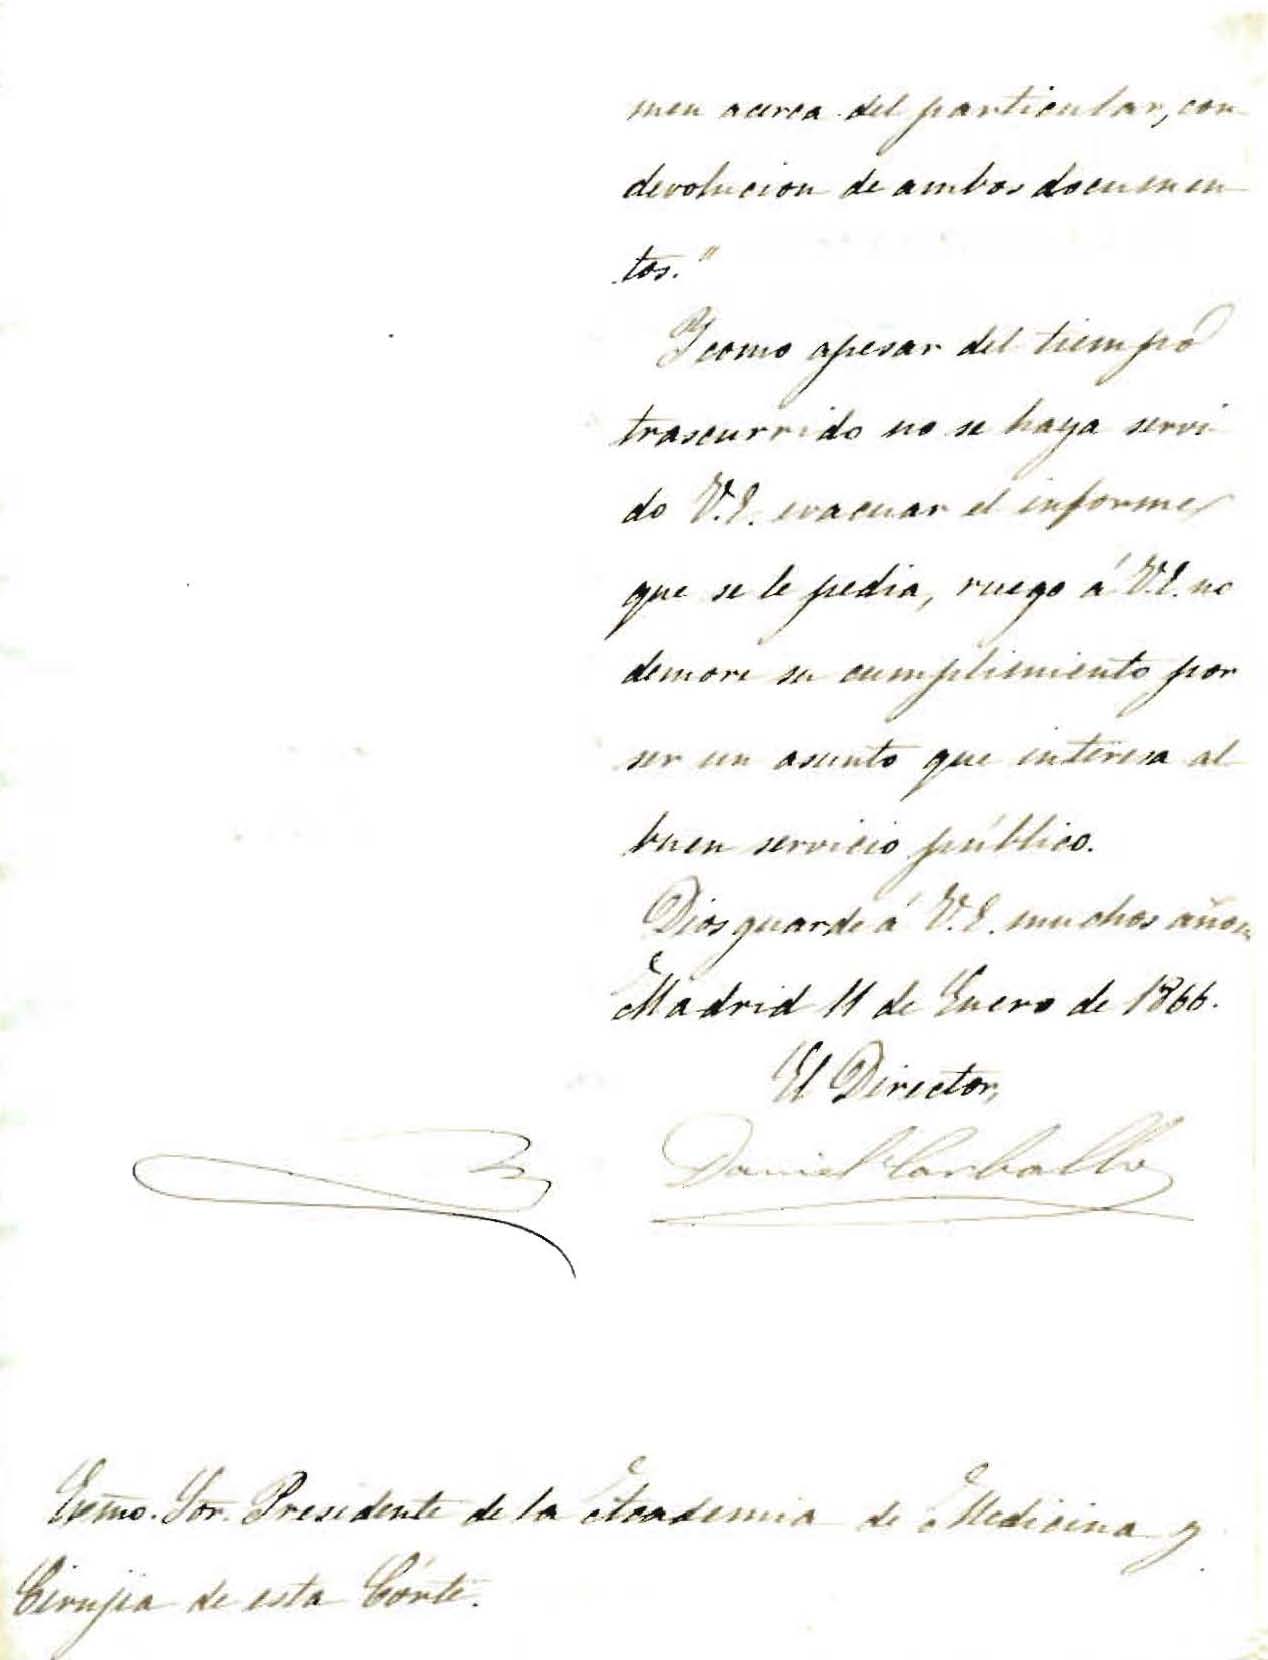 men acerca del particular, con
devolucion de ambos documen
tos."
Y como apesar del tiempo
trascurrido no se haya servi
do V.E. evacuar el informe
que se le pedia, ruego á V.E. no
demore su cumplimiento por
ser un asunto que interesa al
buen servicio público.
Dios guarde á V.E. muchos años
Madrid 11 de Enero de 1866.
El Director,
Daniel Carballo
Exmo. Sor. Presidente de la Academia de Medicina y
Cirujia de esta Córte.